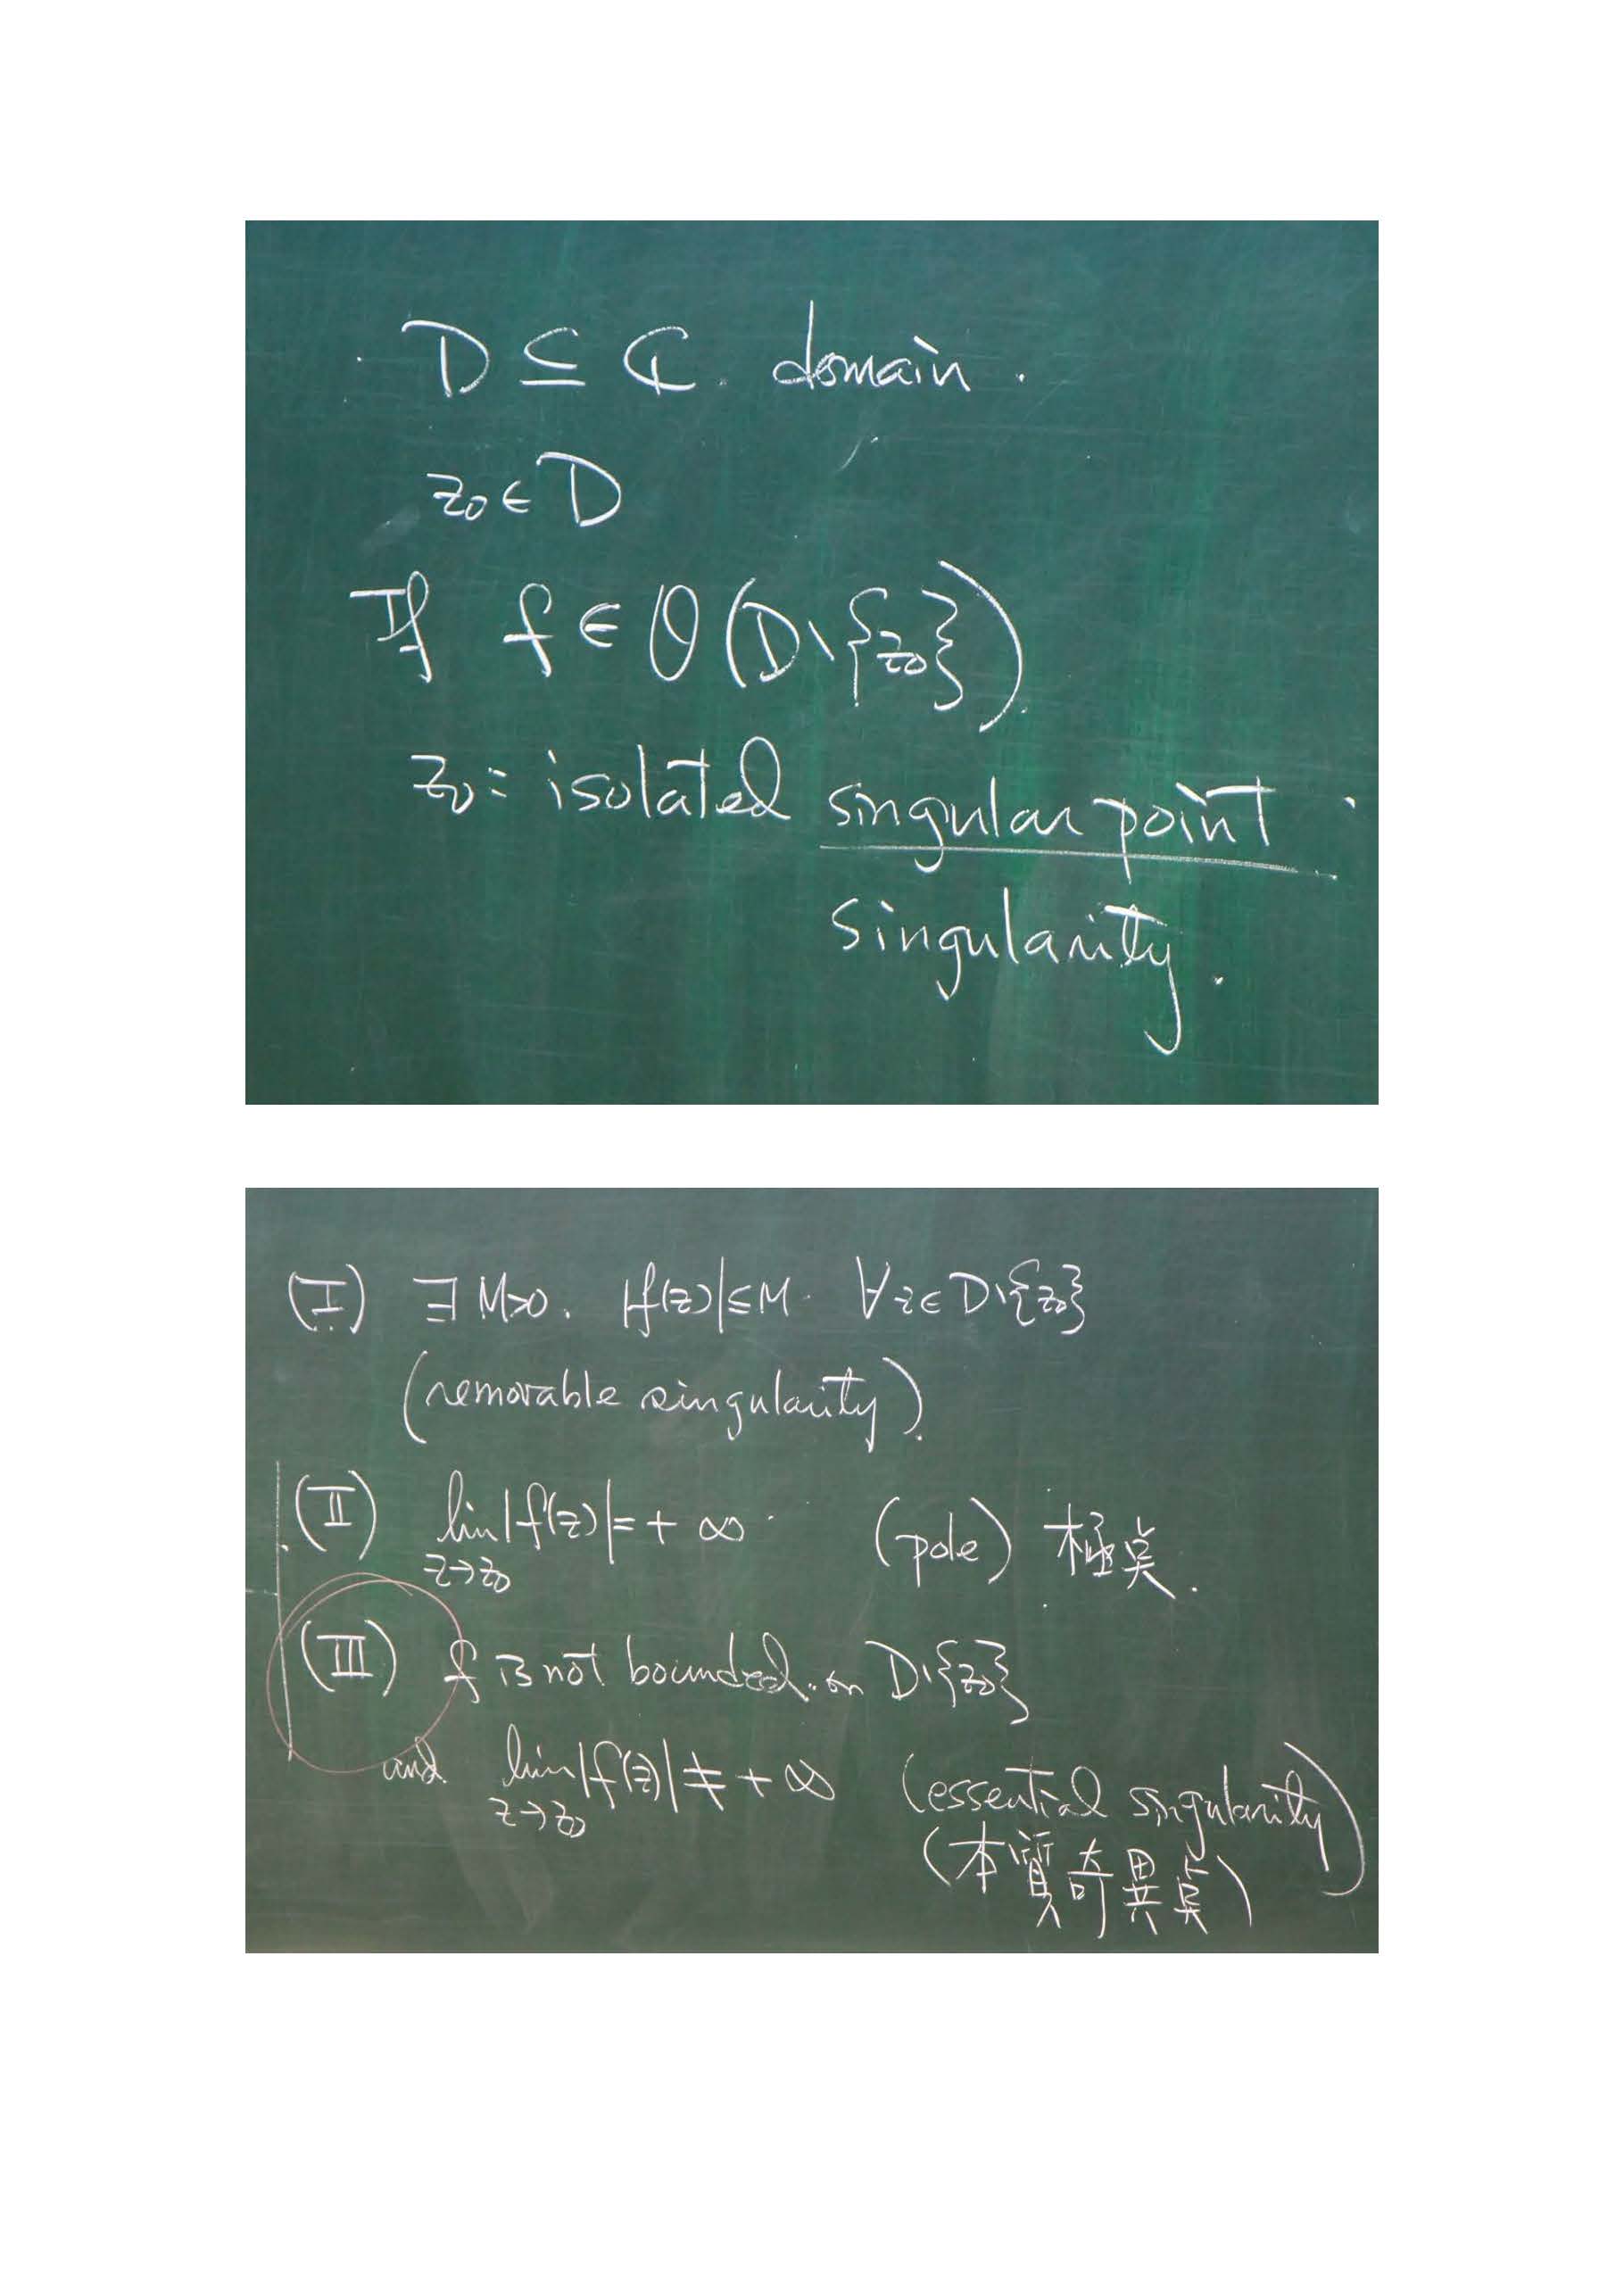 D ⊆ ℂ. domain.
z₀ ∈ D
If f ∈ O(D\{z₀}).
z₀ = isolated singular point.
singularity.
(I) ∃ M>0. |f(z)| ≤ M. ∀ z ∈ D\{z₀}
(removable singularity).
(II) lim |f(z)| = + ∞. (pole) 極奌.
z→z₀
(III) f is not bounded on D\{z₀}
and lim |f(z)| ≠ + ∞ (essential singularity)
z→z₀
(本質奇異奌)